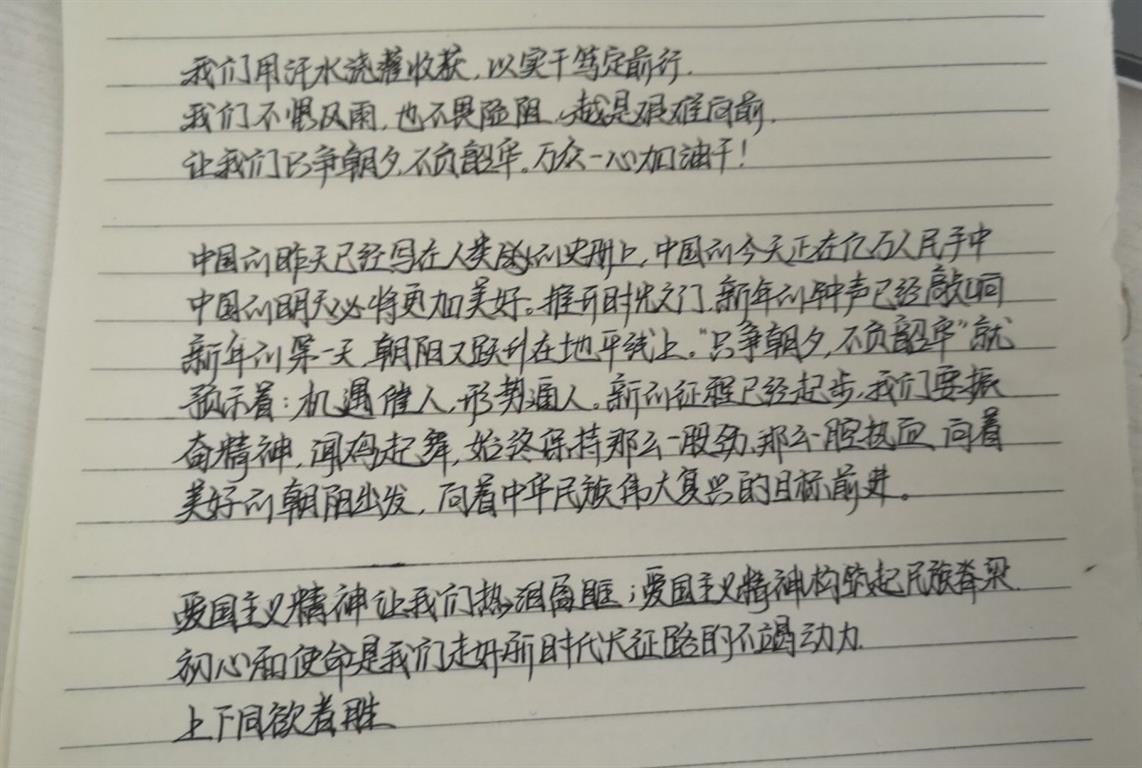 我们用汗水浇灌收获，以实干笃定前行.
我们不惧风雨，也不畏险阻，越是艰难向前.
让我们只争朝夕，不负韶华。万众一心加油干！
中国的昨天已经写在人类的史册上，中国的今天正在亿万人民手中
中国的明天必将更加美好。推开时光之门，新年的钟声已经敲响
新年的第一天，朝阳又跃升在地平线上。“只争朝夕，不负韶华”就
预示着：机遇催人，形势逼人。新的征程已经起步，我们要振
奋精神，闻鸡起舞，始终保持那么一股劲、那么一腔热血，向着
美好的朝阳出发，向着中华民族伟大复兴的目标前进。
爱国主义精神让我们热泪盈眶；爱国主义精神构筑起民族脊梁.
初心和使命是我们走好新时代长征路的不竭动力.
上下同欲者胜